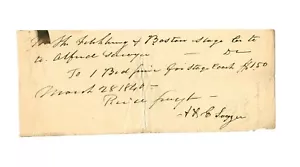 The Fitchburg & Boston Stage Co to
to Alfred Sawyer — Dr
To 1 Bed for Stage Coach $1.50
March 28 1840 —
Rec'd payt —
A Sawyer